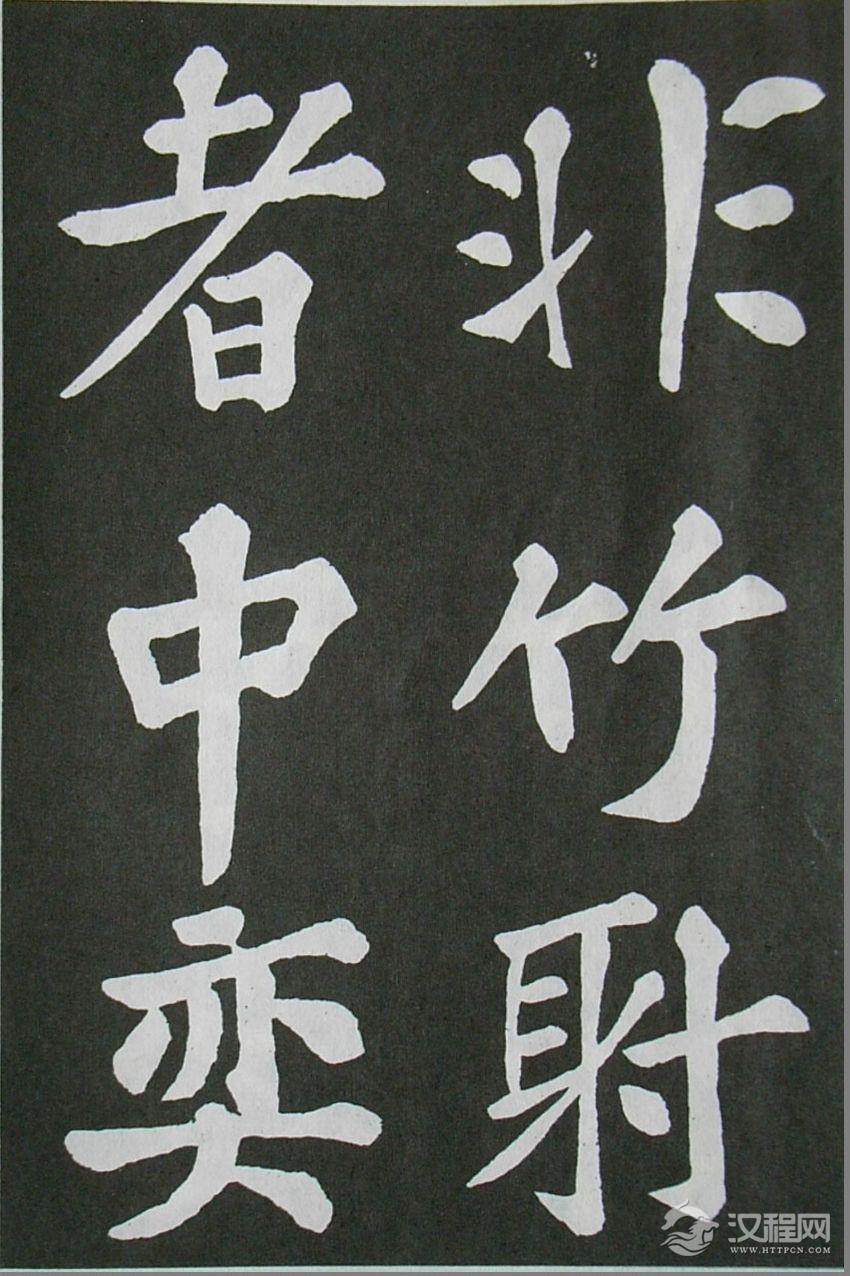 非竹射
者中奕
汉程网
WWW.HTTPCN.COM